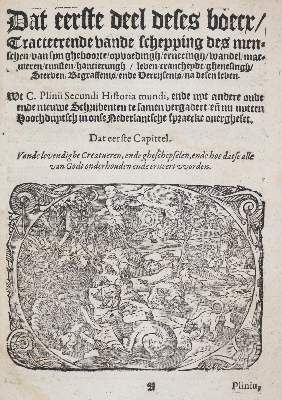 Dat eerste deel deses boecx/
Tracteerende vande schepping des men-
schen/van syn gheboorte/opvoedingh/
wandel/ma-
nieren/consten/hanteringh/leven/
ghenesingh/
Sterven, Begraffenis/ende Verrijsenis/na desen leven.
Wt C. Plinii Secundi Historia mundi, ende wt andere oude
ende nieuwe Schribenten te samen vergadert
Hoochduytsch in onse Nederlantsche spraecke overgheset.
Dat eerste Capittel.
Vande levendighe Creatueren, ende gheschepselen, ende hoe datse alle
van Godt onderhouden ende
worden.
A
Plinius